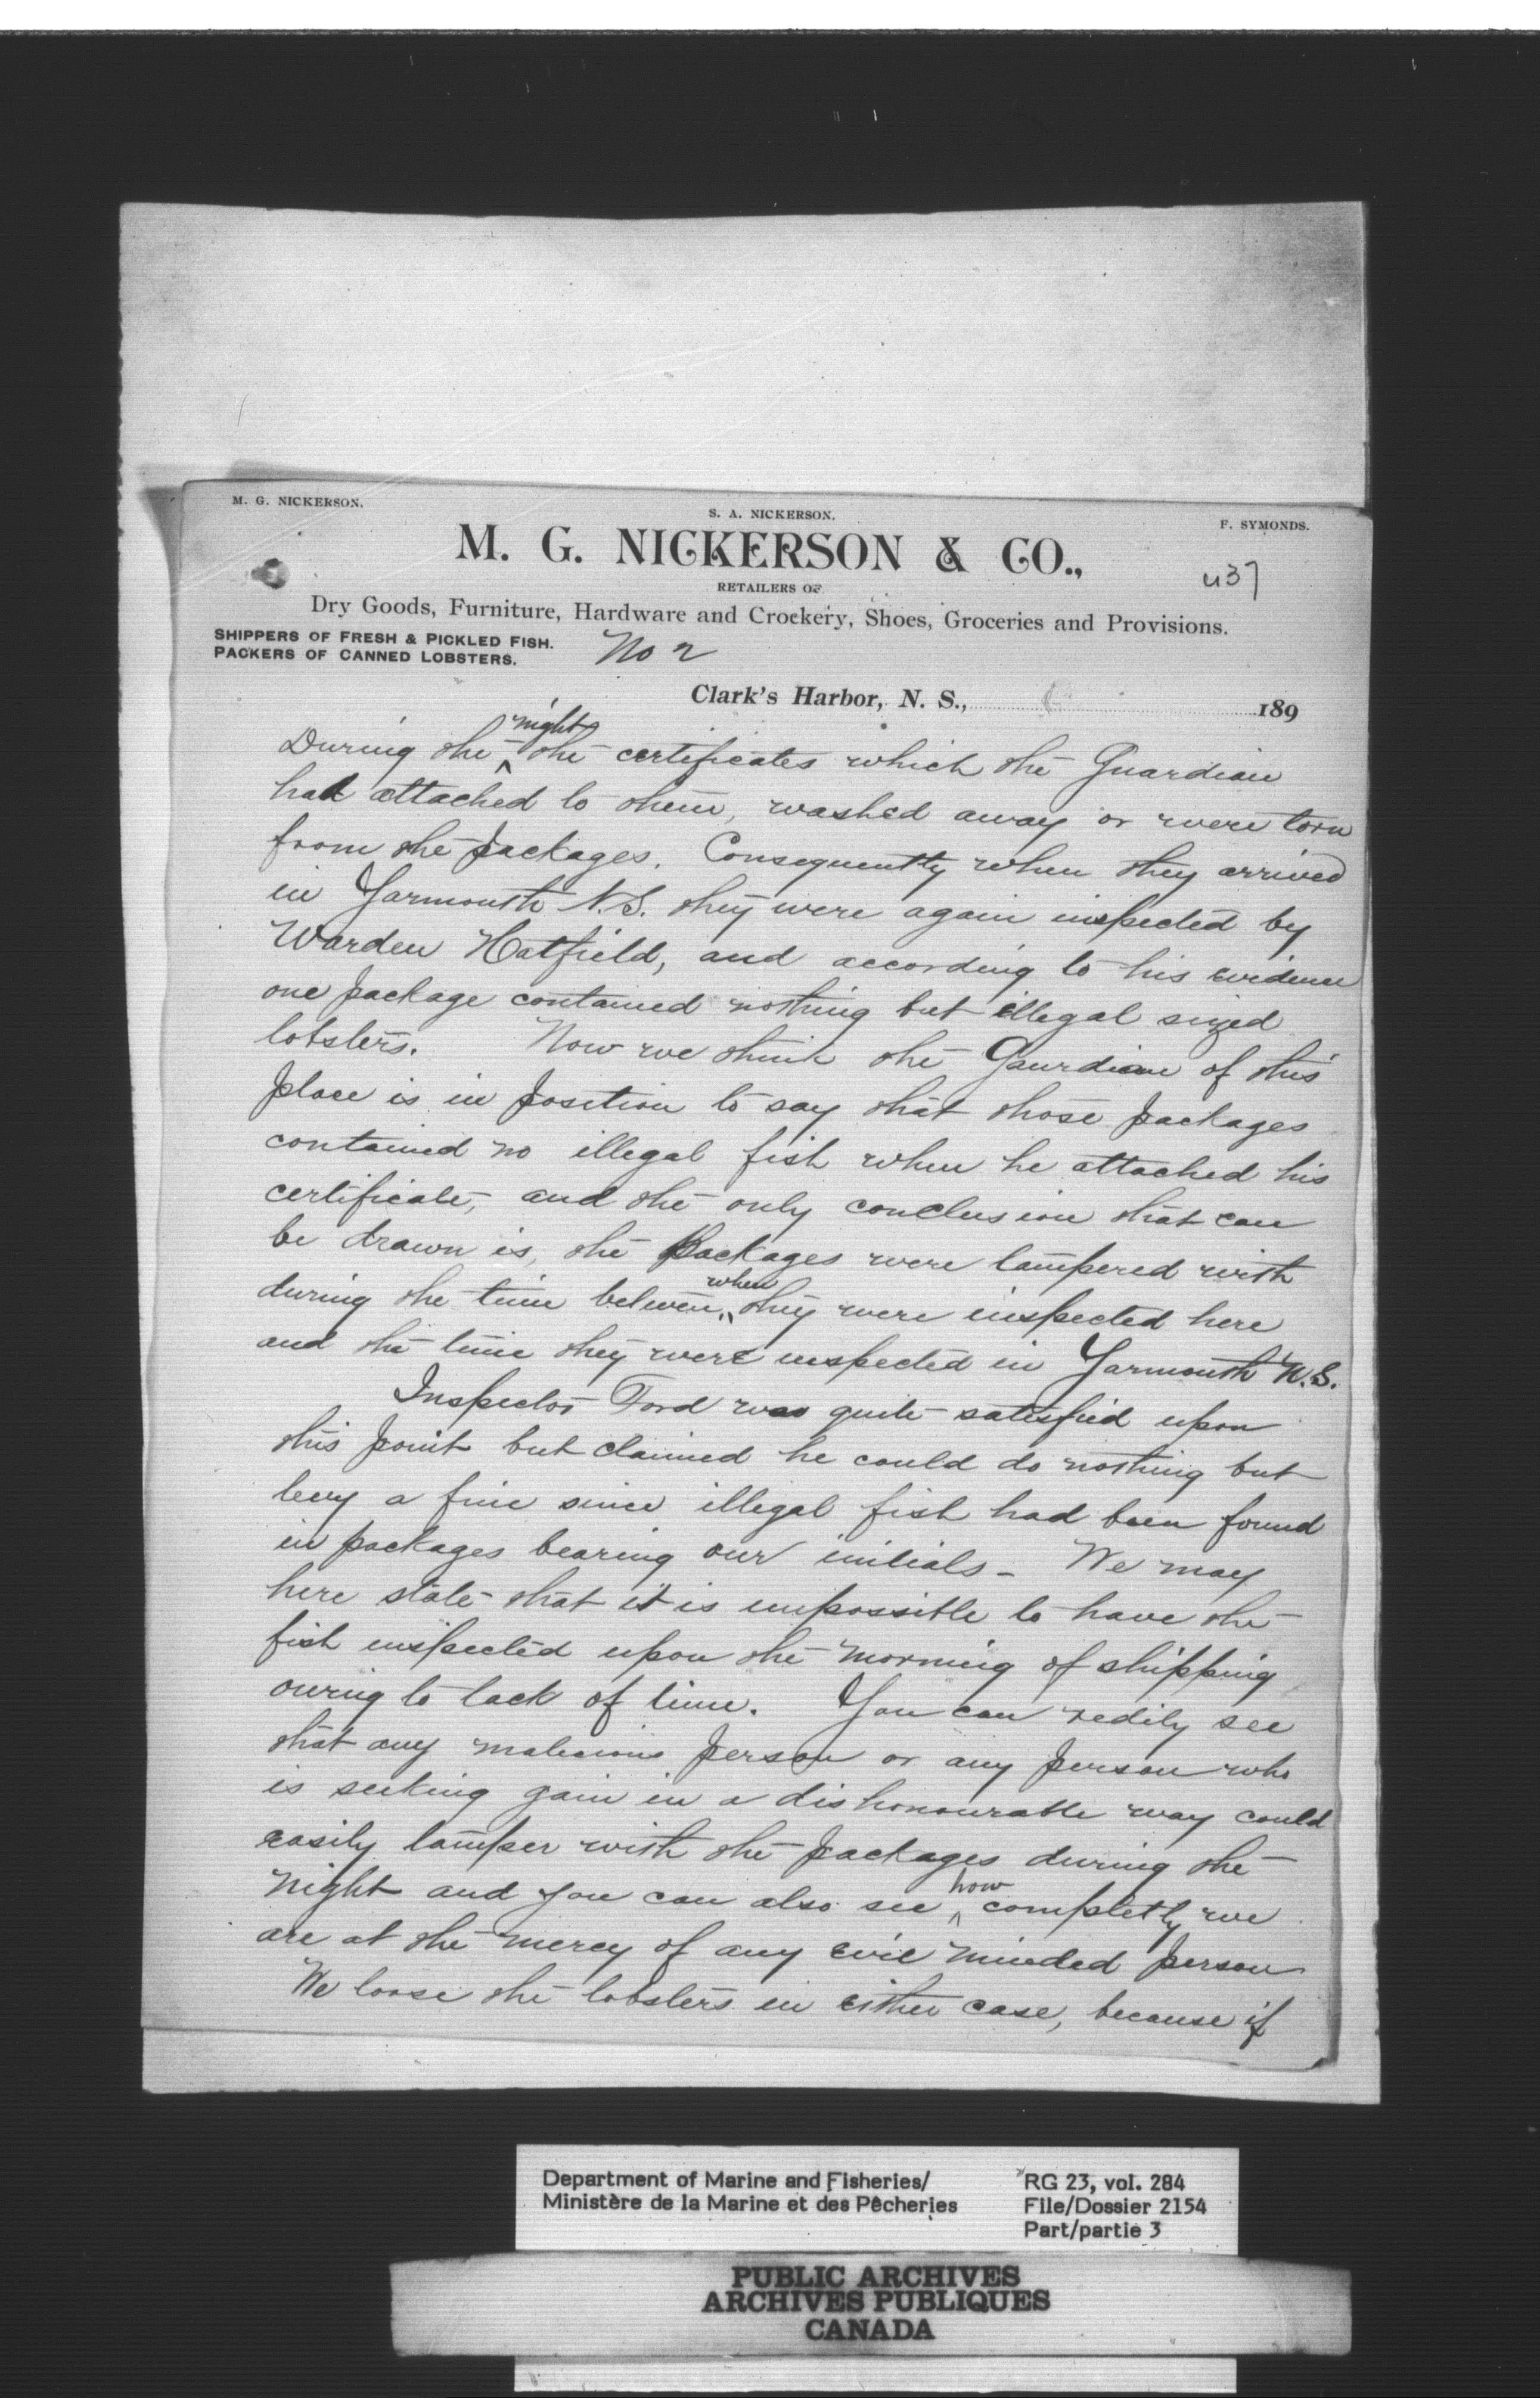 M. G. NICKERSON.
S. A. NICKERSON.
F. SYMONDS.
M. G. NICKERSON & CO.,
437
RETAILERS OF
Dry Goods, Furniture, Hardware and Crockery, Shoes, Groceries and Provisions.
SHIPPERS OF FRESH & PICKLED FISH.
PACKERS OF CANNED LOBSTERS.
No 2
Clark's Harbor, N. S., 189
During the night the certificates which the Guardian
had attached to them, washed away or were torn
from the packages. Consequently when they arrived
in Yarmouth N.S. they were again inspected by
Warden Hatfield, and according to his evidence
one package contained nothing but illegal sized
lobsters. Now we think the Gaurdian of this
place is in position to say that those packages
contained no illegal fish when he attached his
certificate, and the only conclusion that can
be drawn is, the packages were tampered with
during the time between when they were inspected here
and the time they were inspected in Yarmouth N.S.
Inspector Ford was quite satisfied upon
this point but claimed he could do nothing but
levy a fine since illegal fish had been found
in packages bearing our initials - We may
here state that it is impossible to have the
fish inspected upon the morning of shipping
owing to lack of time. You can redily see
that any malicious person or any person who
is seeking gain in a dishonourable way could
easily tamper with the packages during the
night and you can also see how completly we
are at the mercy of any evil minded person
We loose the lobsters in either case, because if
Department of Marine and Fisheries/
Ministère de la Marine et des Pêcheries
RG 23, vol. 284
File/Dossier 2154
Part/partie 3
PUBLIC ARCHIVES
ARCHIVES PUBLIQUES
CANADA